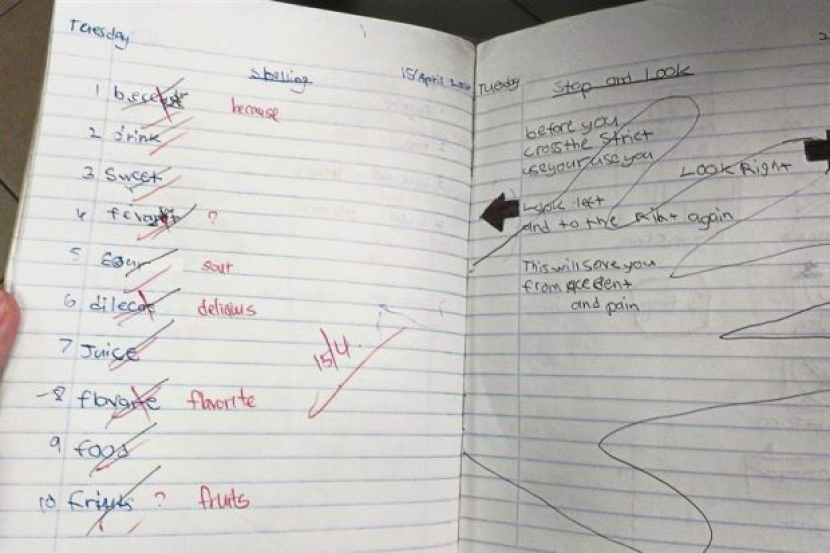 Tuesday
Spelling
15/April
1
because
2 drink
3 Sweet
4 ?
5 Sour sout
6 delicius
7 Juice
8 flavorite
9 food
10 ? fruits
15/4
Tuesday
Stop and Look
before you
cross the Strict
use your use you
Look Right
Look left
and to the Riht again
This will save you
from
and pain
2